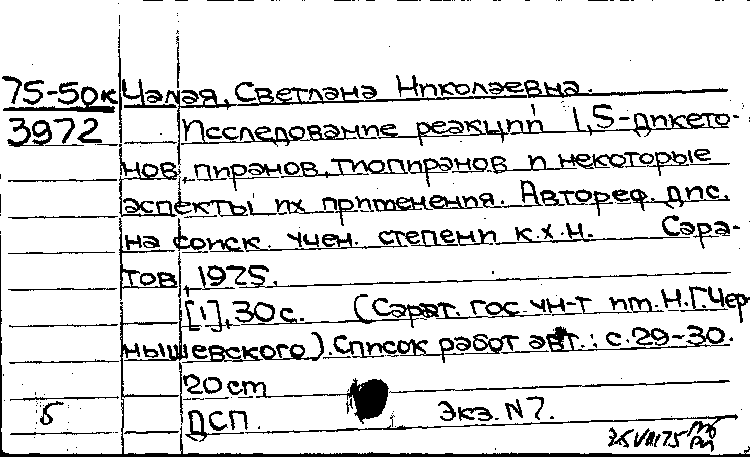 75-50к Чалая, Светлана Николаевна.
3972 Исследование реакций 1,5-дикето-
нов, пиранов, тиопиранов и некоторые
аспекты их применения. Автореф. дис.
на соиск. учен. степени к.х.н. Сара-
тов, 1975.
[1], 30 с. (Сарат. гос. ун-т им. Н.Г. Чер
нышевского). Список работ авт.: с. 29-30.
20 cm
б ДСП. Экз. N7.